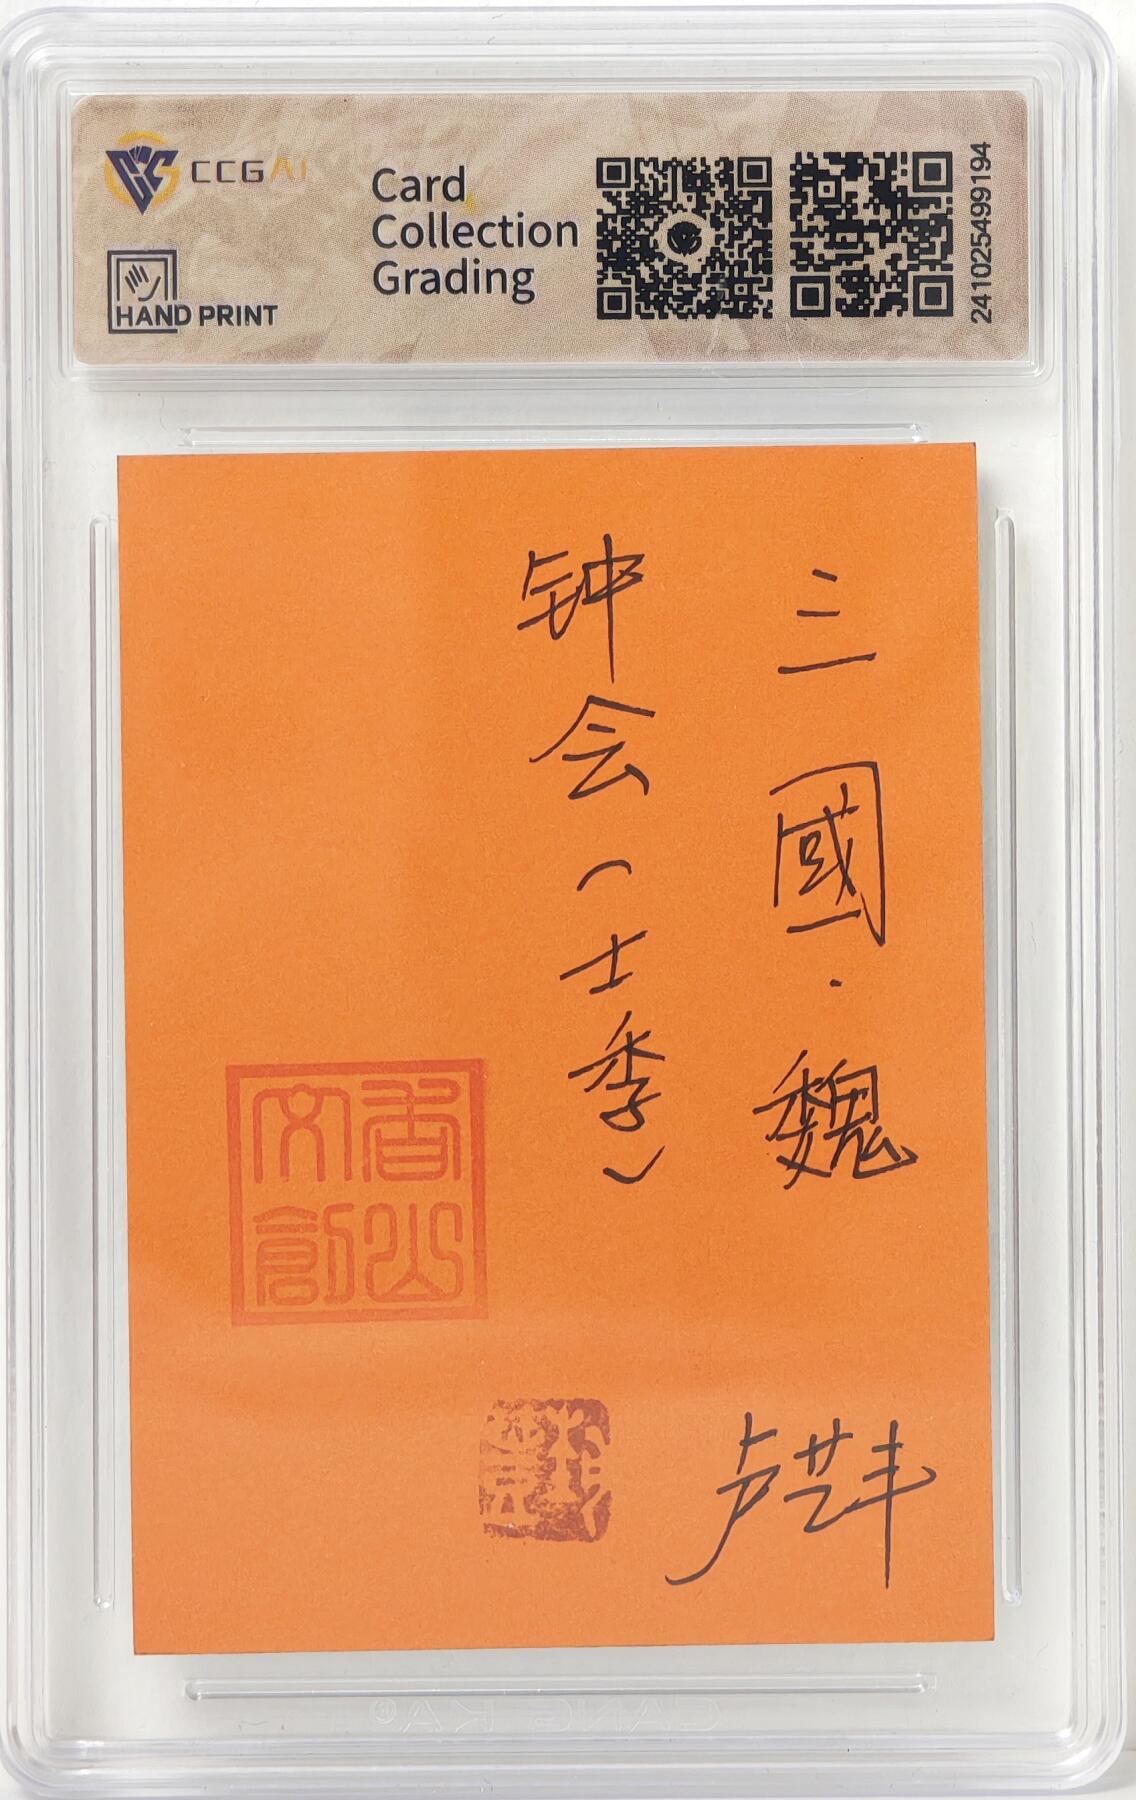 CCGAI
HAND PRINT
Card
Collection
Grading
24102549​9194
三國·魏
钟会(士季)
香山
文創
卢艺丰
CANG KA